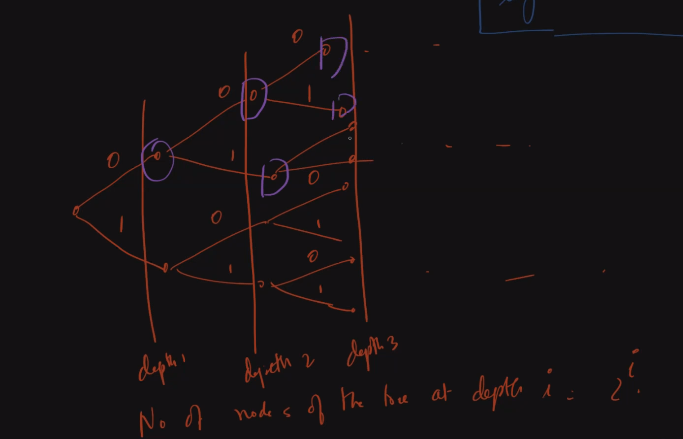 0
0
1
0
1
0
1
0
1
0
1
0
1
depth 1
depth 2
depth 3
No of nodes of the tree at depth i = 2^i.